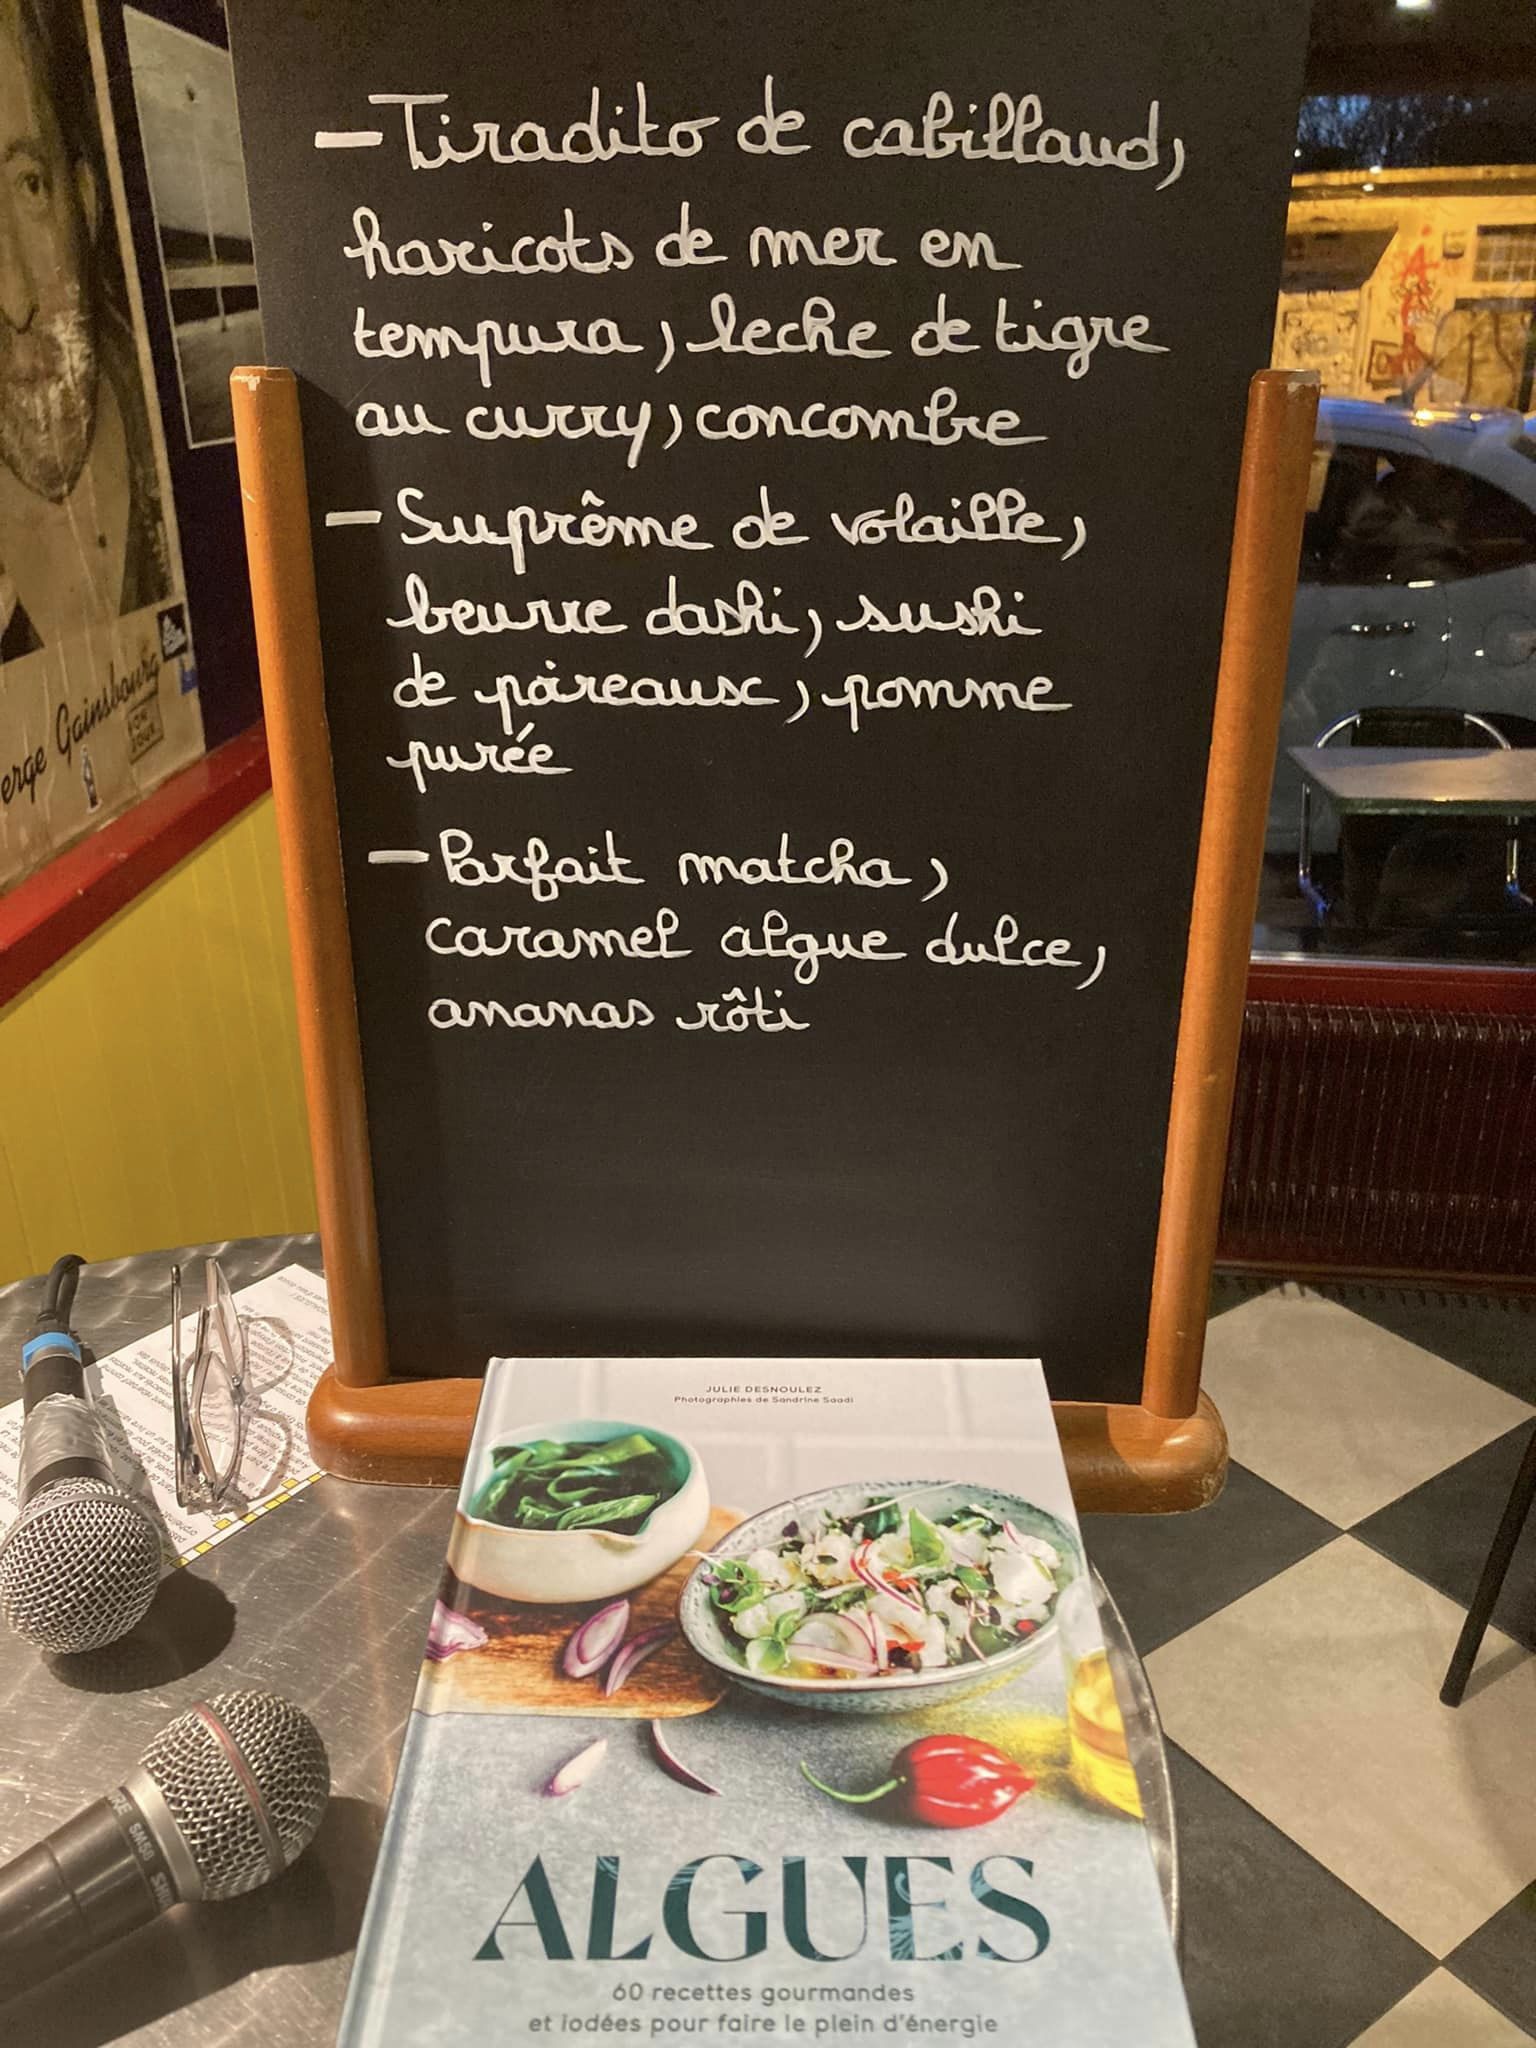 - Tiradito de cabillaud,
haricots de mer en
tempura, leche de tigre
au curry, concombre
- Suprême de volaille,
beurre dashi, sushi
de pàireaux, pomme
purée
- Parfait matcha,
caramel algue dulce,
ananas rôti
erge Gainsbourg
JULIE DESNOULEZ
Photographies de Sandrine Saadi
ALGUES
60 recettes gourmandes
et iodées pour faire le plein d'énergie
SM58